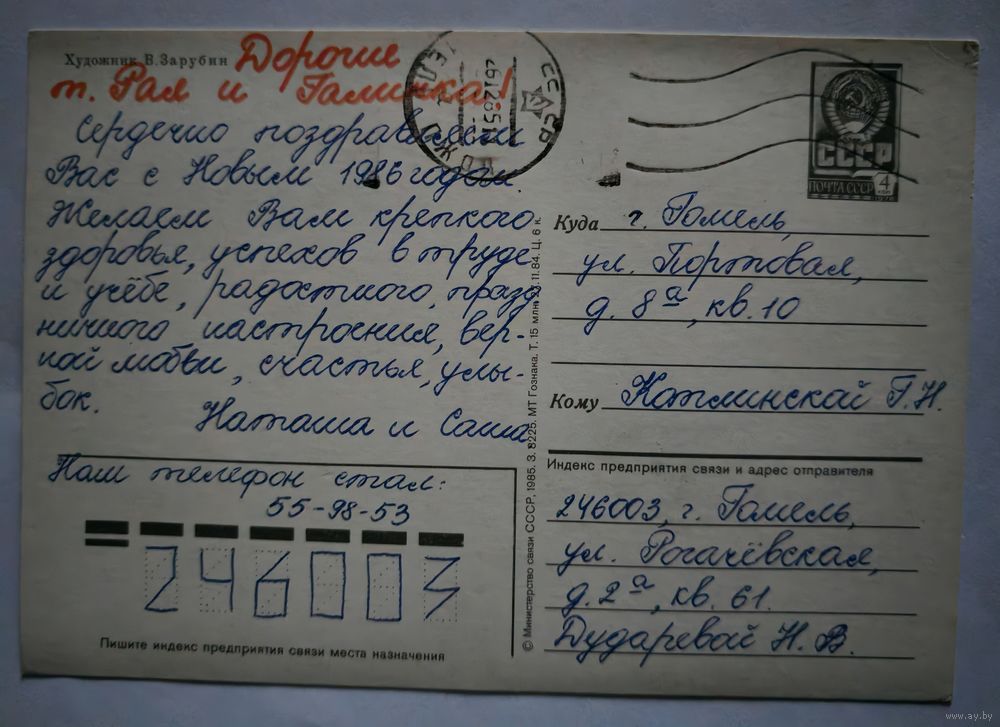 Художник В. Зарубин
Дорогие
т. Рая и Галинка!
Сердечно поздравляем
Вас с Новым 1986 годом.
Желаем Вам крепкого
здоровья, успехов в труде
и учёбе, радостного, празд
ничного настроения, вер-
ной любви, счастья, улы-
бок.
Наташа и Саша
Наш телефон стал:
55-98-53
246003
Пишите индекс предприятия связи места назначения
© Министерство связи СССР, 1985. З. 8225. МТ Гознака. Т. 15 млн. 23.11.84. Ц. 6 к.
СССР
СССР
ПОЧТА СССР 4
1976
Куда г. Гомель,
ул. Портовая,
д. 8а, кв. 10
Кому Катлинской Г. Н.
Индекс предприятия связи и адрес отправителя
246003, г. Гомель,
ул. Рогачёвская,
д. 2а, кв. 61.
Дударевой Н. В.
www.ay.by